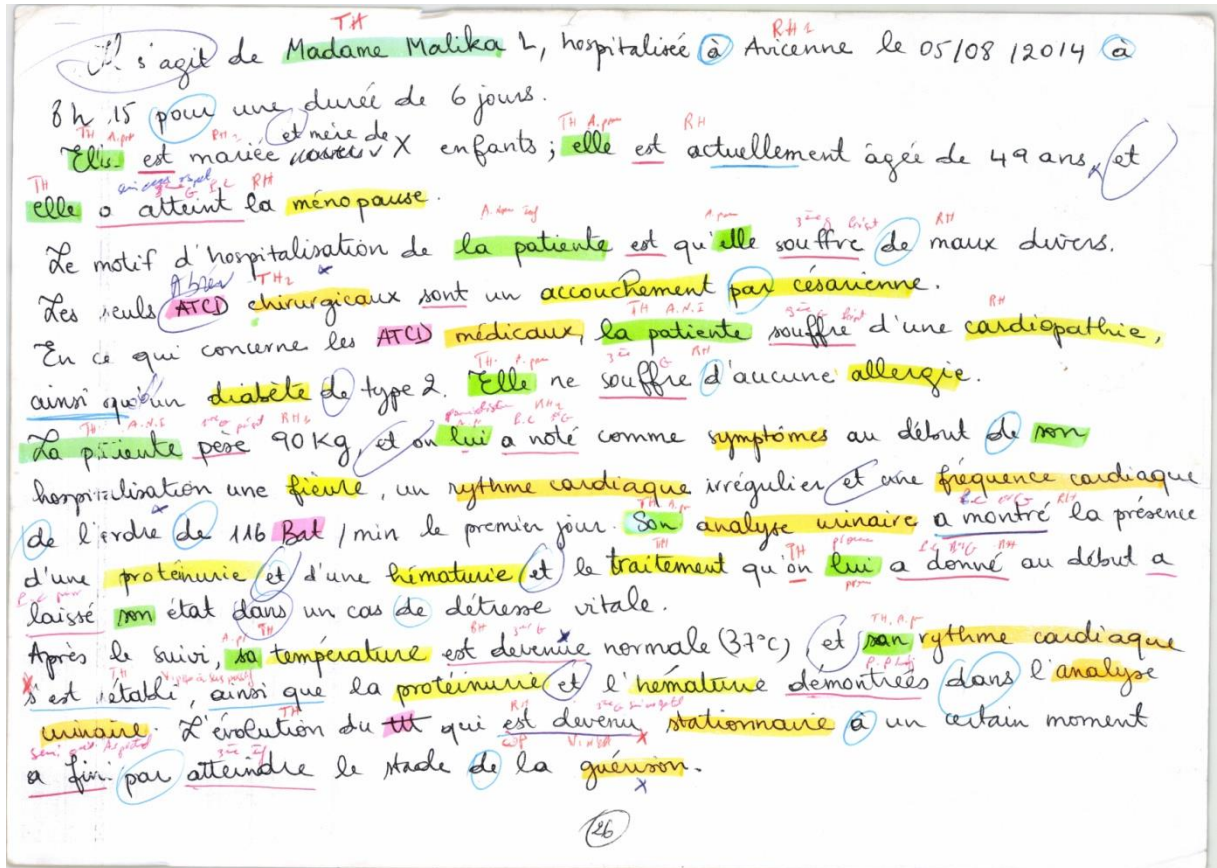 TH RH 1
Il s'agit de Madame Malika L, hospitalisée à Avicenne le 05/08/2014 à
8h 15 pour une durée de 6 jours.
et mère de
Elle est mariée X enfants ; elle est actuellement âgée de 49 ans, et
elle a atteint la ménopause.
Le motif d'hospitalisation de la patiente est qu'elle souffre de maux divers.
Les seuls ATCD chirurgicaux sont un accouchement par césarienne.
En ce qui concerne les ATCD médicaux, la patiente souffre d'une cardiopathie,
ainsi qu'un diabète de type 2. Elle ne souffre d'aucune allergie.
La patiente pèse 90 Kg, et on lui a noté comme symptômes au début de son
hospitalisation une fièvre, un rythme cardiaque irrégulier et une fréquence cardiaque
de l'ordre de 116 Bat / min le premier jour. Son analyse urinaire a montré la présence
d'une protéinurie et d'une hématurie et le traitement qu'on lui a donné au début a
laissé son état dans un cas de détresse vitale.
Après le suivi, sa température est devenue normale (37°C) et son rythme cardiaque
s'est établi, ainsi que la protéinurie et l'hématurie démontrées dans l'analyse
urinaire. L'évolution du ttt qui est devenu stationnaire à un certain moment
a fini par atteindre le stade de la guérison.
26